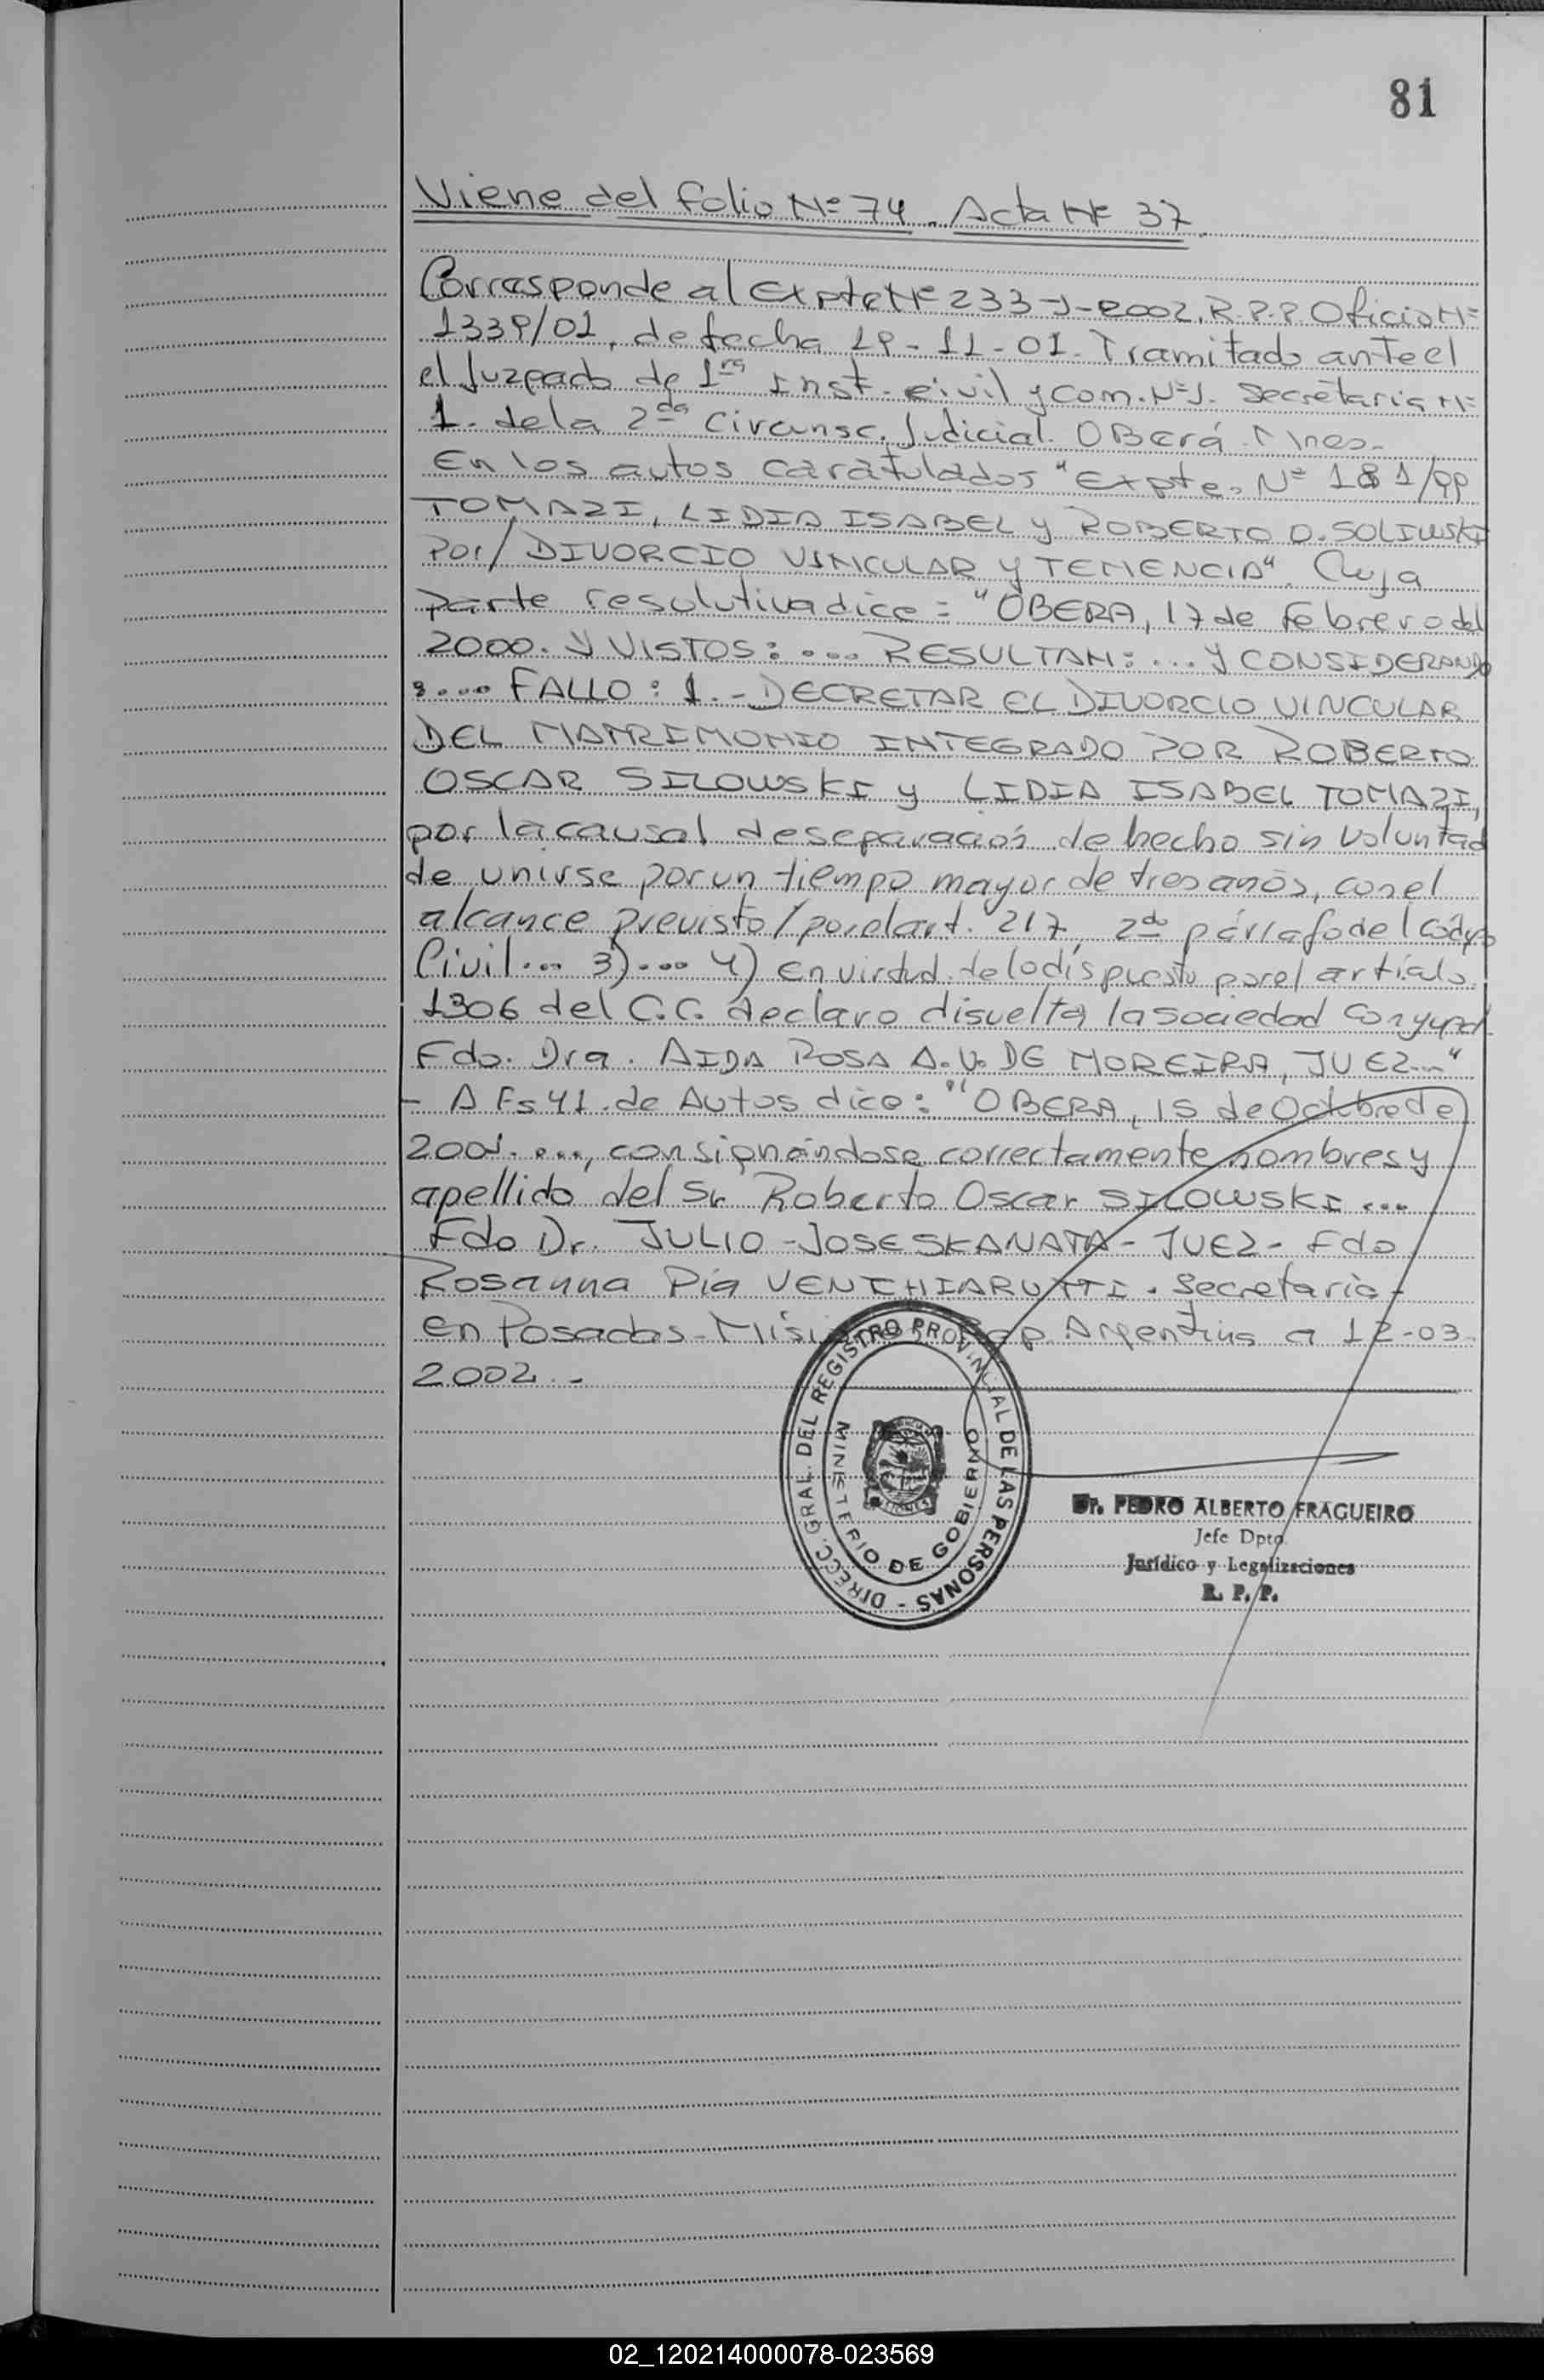 81
Viene del folio Nº 74. Acta Nº 37.
Corresponde al Expte Nº 233-J-2002. R.P.P Oficio Nº
1339/01, de fecha 19-11-01. Tramitado ante el
el Juzgado de 1ra Inst. civil y Com. Nº 1. Secretaria Nº
1. de la 2da Circunsc. Judicial. OBerá. Mnes.
En los autos caratulados "Expte. Nº 181/99
TOMAZI, LIDIA ISABEL y ROBERTO O. SOLIWSKI
Por/ DIVORCIO VINCULAR y TENENCIA". Cuya
parte resolutiva dice: "OBERA, 17 de Febrero del
2000. Y VISTOS: .... RESULTAN: ... y CONSIDERANDO
: .... FALLO: 1.- DECRETAR EL DIVORCIO VINCULAR
DEL MATRIMONIO INTEGRADO POR ROBERTO
OSCAR SILOWSKI y LIDIA ISABEL TOMAZI,
por la causal de separación de hecho sin voluntad
de unirse por un tiempo mayor de tres años, con el
alcance previsto/por el art. 217, 2do párrafo del Código
Civil... 3).... 4) en virtud de lo dispuesto por el artículo
1306 del C.C. declaro disuelta la sociedad conyugal.
Fdo. Dra. AIDA ROSA A.V. DE MOREIRA, JUEZ..."
- A Fs 41. de Autos dice: "OBERA, 15 de Octubre de
2001. ...., consignándose correctamente nombres y
apellido del Sr. Roberto Oscar SILOWSKI ...
Fdo Dr. JULIO -JOSE SKANATA- JUEZ- Fdo
Rosanna Pia VENCHIARUTTI. Secretaria-
en Posadas- Rep. Argentina a 12-03-
2002.-
DIRECC. GRAL. DEL REGISTRO PROVINCIAL DE LAS PERSONAS -
MINISTERIO DE GOBIERNO
Dr. PEDRO ALBERTO FRAGUEIRO
Jefe Dpto.
Jurídico y Legalizaciones
R. P. P.
02_120214000078-023569